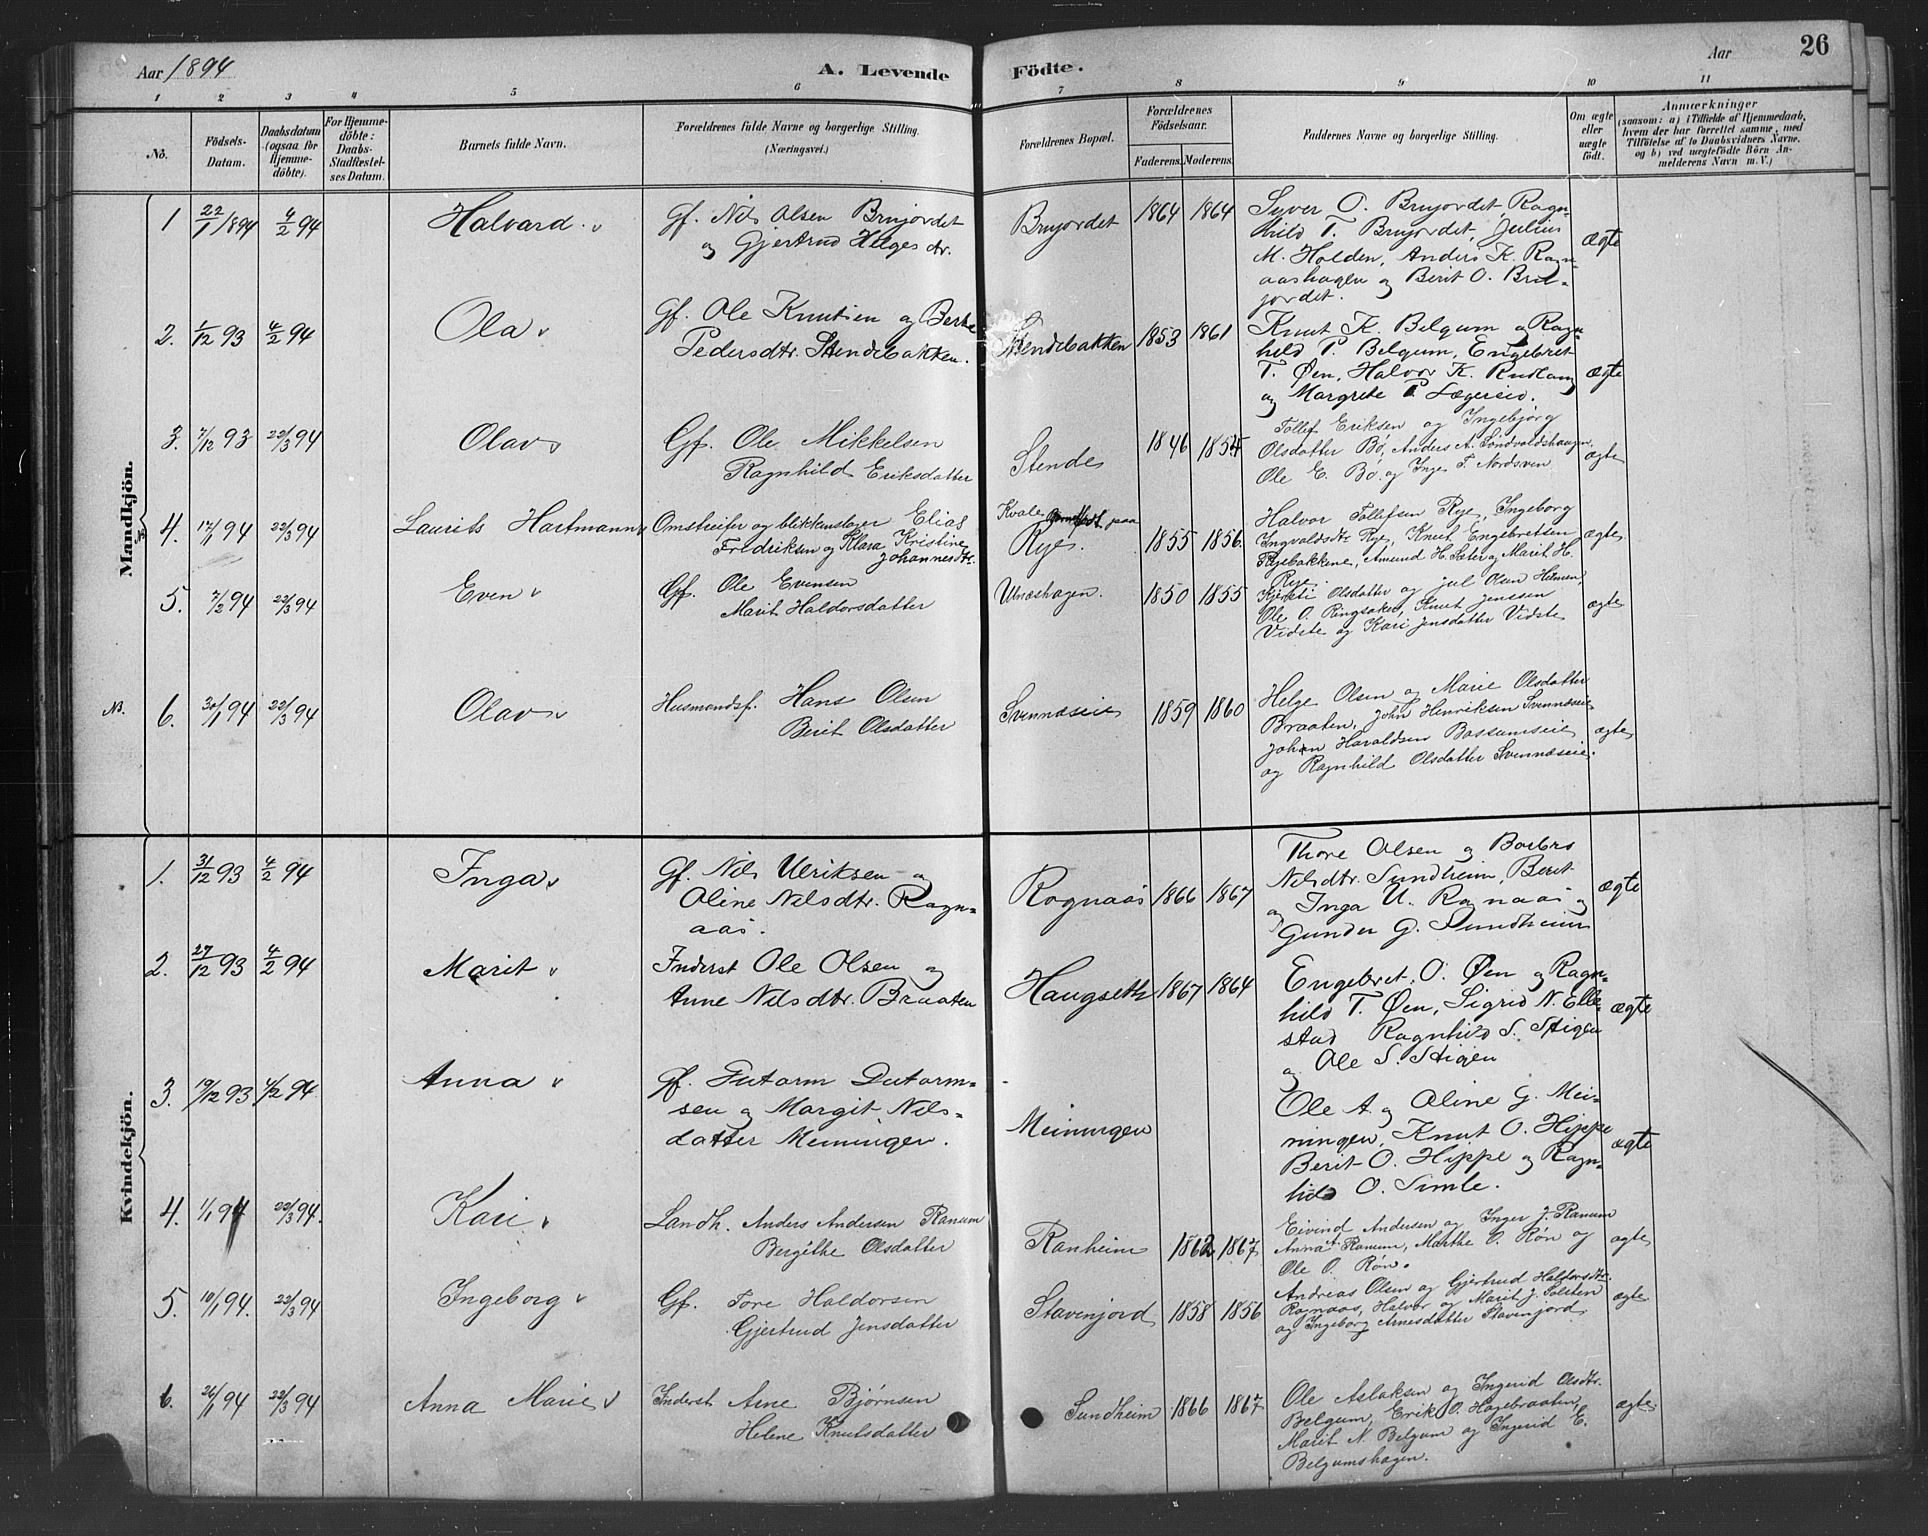 Aar 1894
A. Levende Födte.
Aar
26
1 2 3 4 5 6 7 8 9 10 11
No.
Födsels-Datum.
Daabsdatum (ogsaa for Hjemmedöbte).
For Hjemmedöbte: Daabs-Stadfestelses Datum.
Barnets fulde Navn.
Forældrenes fulde Navne og borgerlige Stilling.
(Næringsvei.)
Forældrenes Bopæl.
Forældrenes Födselsaar.
Faderens. Moderens.
Faddernes Navne og borgerlige Stilling.
Om ægte eller uægte födt.
Anmærkninger
(saasom: a) i Tilfælde af Hjemmedaab,
hvem der har forrettet samme, med
Tilföielse af to Daabsvidners Navne.
og b) ved uægtefödte Börn Anmelderens Navn m. V.)
Mandkjön.
1 22/1 1894 4/2 94 Halvard.
Gf. Nils Olsen Brujordet
og Gjertrud Helgesdtr.
Brujordet 1864 1864
Syver O. Brujordet, Ragn-
hild T. Brujordet, Julius
M. Holden, Anders K. Rogn-
aashagen og Berit O. Bru-
jordet.
ægte
2. 1/12 93 4/2 94 Ola
Gf. Ole Knutsen og Berte
Pedersdtr. Stendebakken.
Stendebakken 1853 1861
Knut K. Belgum og Ragn-
hild P. Belgum, Engebret
T. Øen, Halvor K. Rudlang
og Margrete P. Lægereid.
ægte
3. 7/12 93 22/3 94 Olav
Gf. Ole Mikkelsen
Ragnhild Eriksdatter
Stende 1846 1854
Tollef Eriksen og Ingebjørg
Olsdatter Bø, Anders A. Sondvoldshaugen,
Ole E. Bø og Inge T. Nordsven
ægte
4. 17/1 94 22/3 94 Laurits Hartmann
Omstreifer og blikkenslager Elias
Fredriksen og Klara Kristine
Johannesdtr.
Kvale paa
Rye. 1855 1856.
Halvor Tollefsen Rye, Ingeborg
Ingvaldsdtr Rye, Knut Engebretsen
Ryebakkene, Amund H. Sæter og Marit H.
Rye.
ægte
5. 7/2 94 22/3 94 Even
Gf. Ole Evensen
Marit Haldorsdatter
Ulnæshagen. 1850 1855
Kjersti Olsdatter og Jul Olsen Heimen,
Ole O. Ringsaker, Knut Jenssen
Vidste og Kari Jensdatter Vidste
ægte
NB. 6. 30/1 94 22/3 94 Olav
Husmandsf. Hans Olsen
Berit Olsdatter
Svennæseie 1859 1860
Helge Olsen og Marie Olsdatter
Braaten, John Henriksen Svennæseie
Johan Haraldsen Bassumseie
og Ragnhild Olsdatter Svennæseie.
ægte
Kvindekjön.
1. 31/12 93 4/2 94 Inga
Gf. Nils Ulriksen og
Oline Nilsdtr. Rogn-
aas.
Rognaas 1866 1867
Thore Olsen og Barbro
Nilsdtr. Sundheim, Berit
og Inga U. Rognaas og
Gunder G. Sundheim
ægte
2. 27/12 93 4/2 94 Marit
Inderst Ole Olsen og
Anne Nilsdtr. Braaten
Haugseth 1867 1864
Engebret O. Øen og Ragn-
hild T. Øen, Sigrid N. Elle-
stad Ragnhild S. Stigen
og Ole S. Stigen
ægte
3. 19/12 93 4/2 94 Anna
Gf. Gutorm Gutorm-
sen og Margit Nils-
datter Meiningen.
Meiningen
Ole A. og Oline G. Mei-
ningen, Knut O. Hippe
Berit O. Hippe og Ragn-
hild O. Simle.
ægte
4. 1/1 94 22/3 94. Kari
Landh. Anders Andersen Ranum
Bergithe Olsdatter
Ranheim 1862 1867
Eivind Andersen og Inger J. Ranum
Anna A. Ranum, Marthe O. Røn og
Ole O. Røn.
ægte
5. 10/1 94. 22/3 94 Ingeborg
Gf. Tore Haldorsen
Gjertrud Jensdatter
Stavenjord 1858 1856
Andreas Olsen og Gjertrud Haldorsdtr.
Rognaas, Halvor og Marit J. Solsten
og Ingeborg Arnesdatter Stavenjord.
ægte
6. 26/1 94 22/3 94 Anna Marie
Inderst Arne Bjørnsen
Helene Knutsdatter
Sundheim 1866 1867
Ole Aslaksen og Ingerid Olsdtr.
Belgum, Erik O. Hagebraaten,
Marit N. Belgum og Ingerid E.
Belgumshagen.
ægte